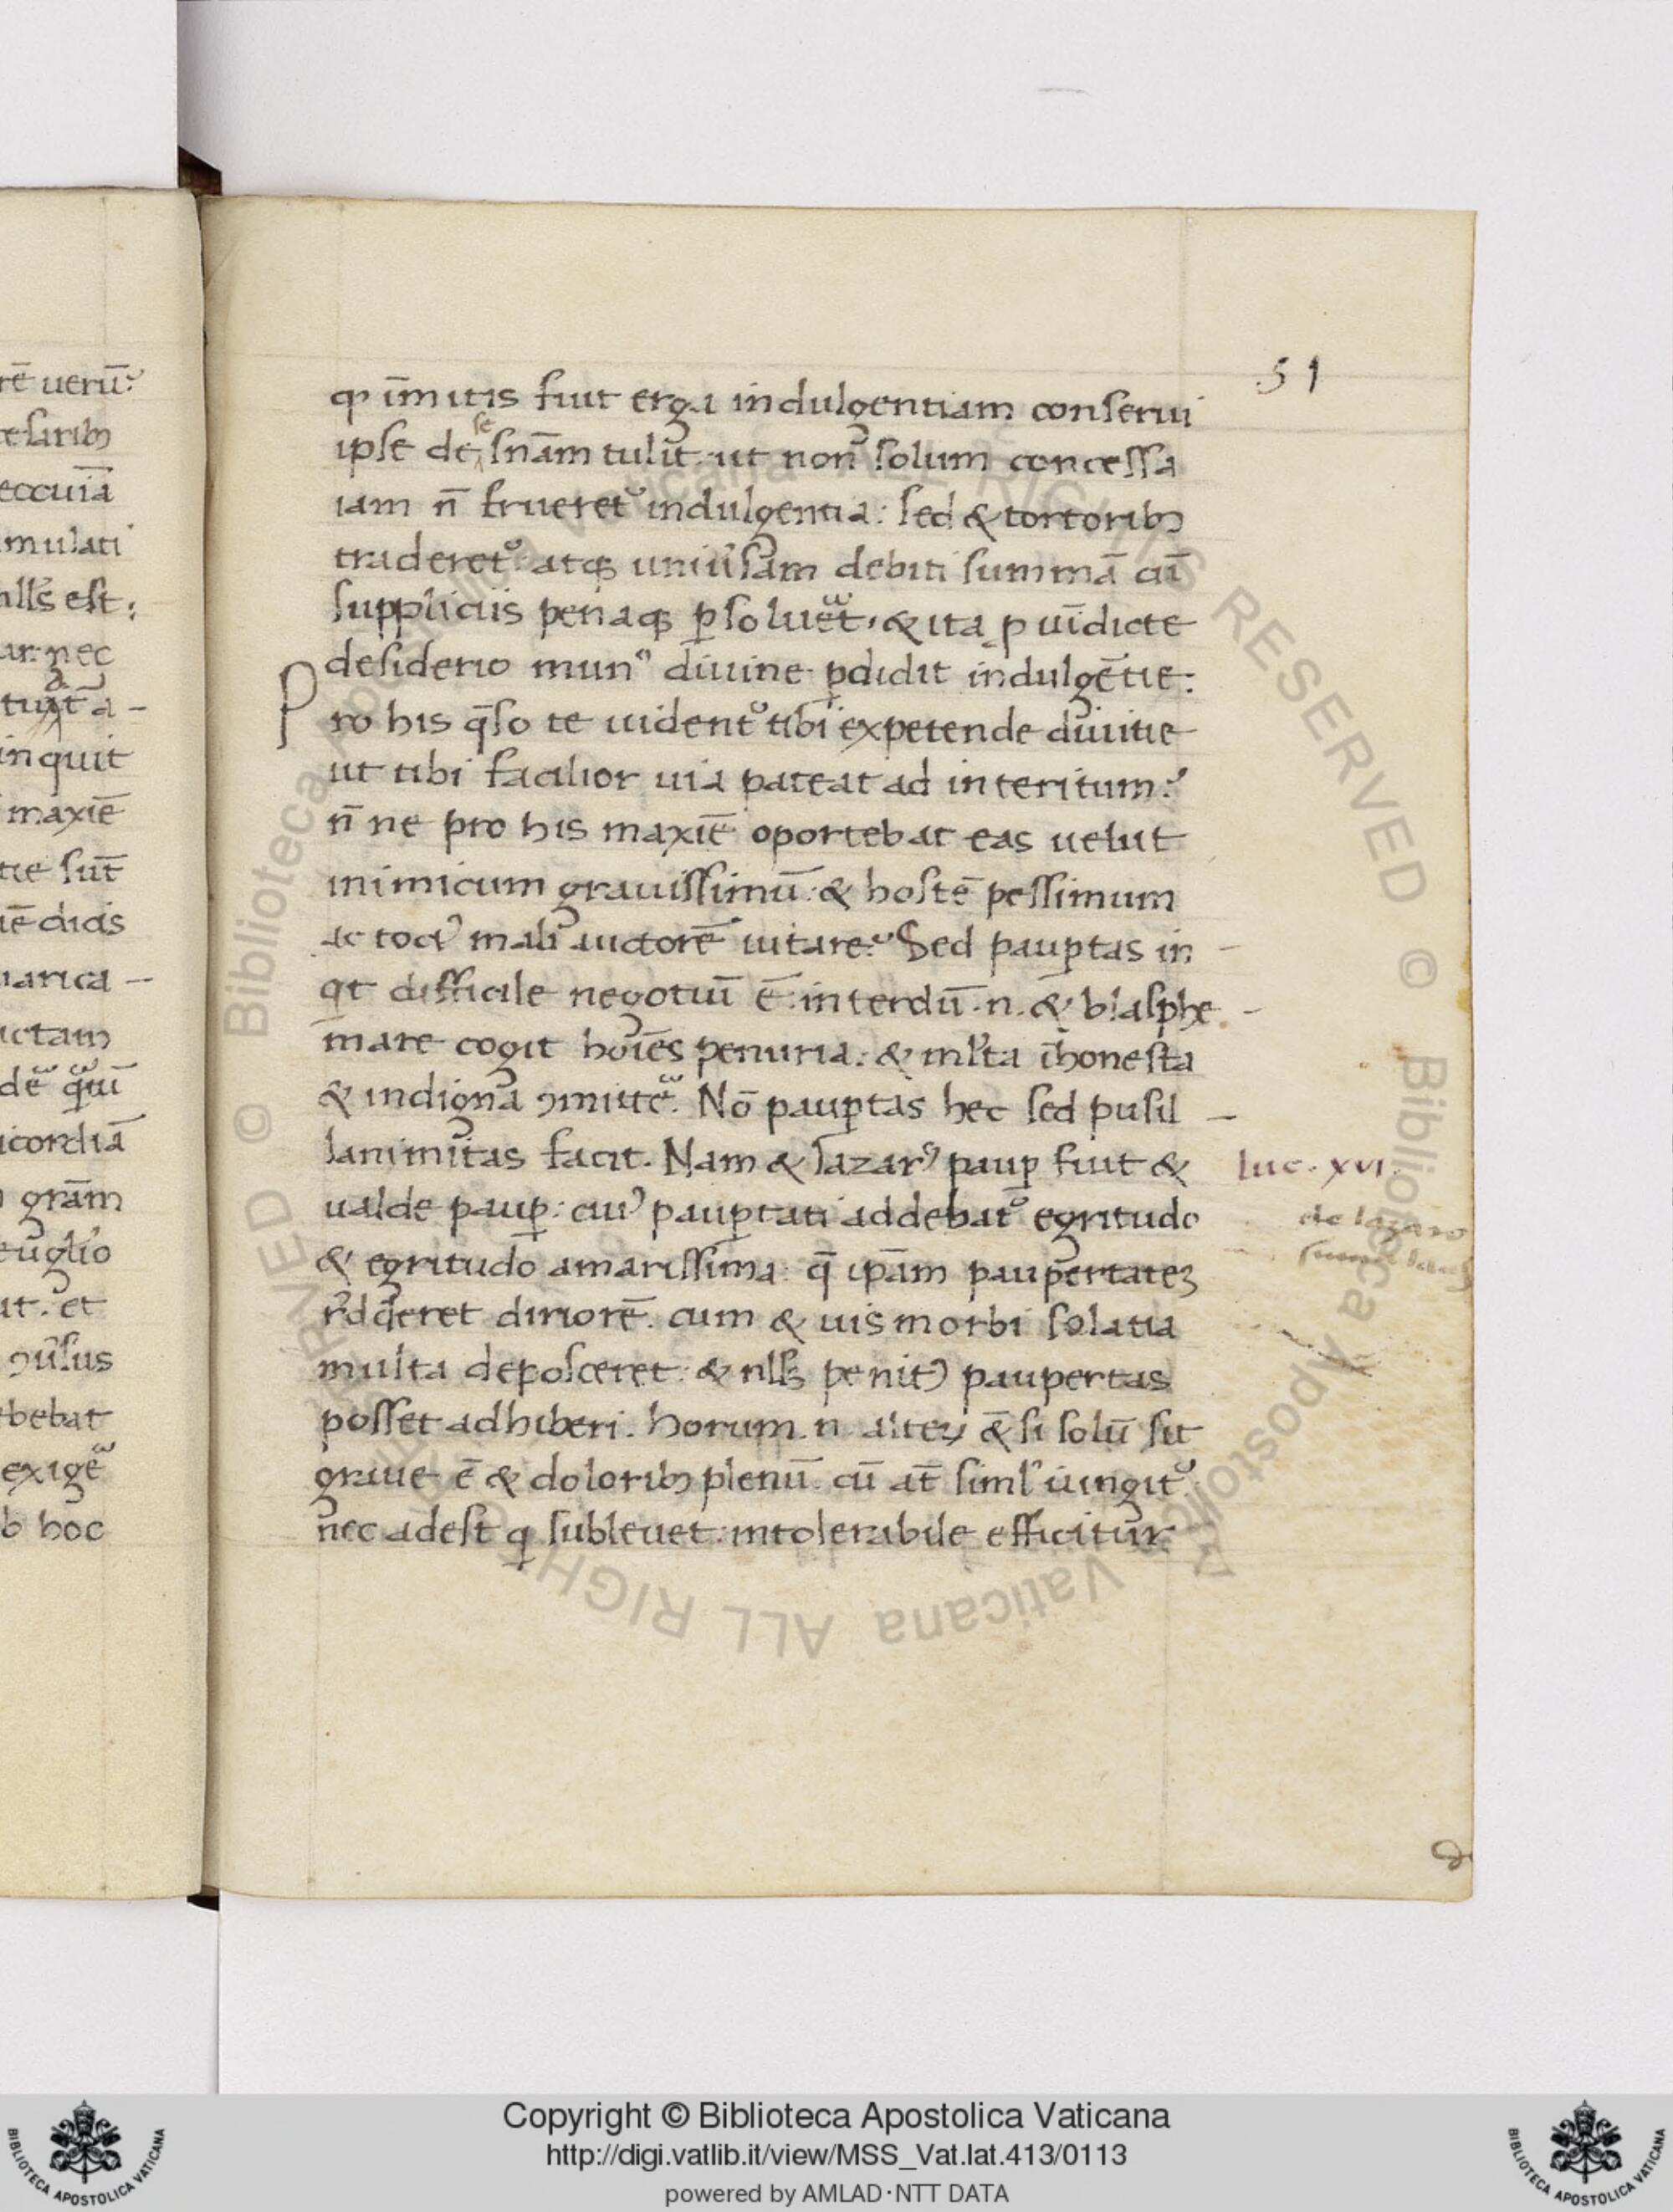 rē uerū
mulati
ulls̄ est
nec
inquit
maxīe
tie sūt
dicis
uarica
ictam
icordiā
grām
euglio
ut. et
ɔuersus
bebat
exigē
b hoc
51
qꝫ īmitis fuit erga indulgentiam conserui
ipse de se snām tulit. ut non solum concessa
iam n̄ frueret᷑ indulgentia: sed & tortoribꝫ
traderet᷑ atqꝫ uniūsam debiti summā cū
suppliciis penaqꝫ ꝑsoluet. & ita ꝓ uīdicte
desiderio mun᷒ diuine ꝑdidit indulgētie:
Pro his q̄so te uident᷑ tibi expetende diuitie
ut tibi facilior uia pateat ad interitum?
n̄ ne pro his maxīe oportebat eas uelut
inimicum grauissimū. & hostē pessimum
ac toci᷒ mali auctorē uitare? Sed pauꝑtas in
qt difficile negotiū ē. interdū .n. & blasphe
mare cogit hoīēs penuria. & ml̓ta īhonesta
& indigna ꝯmittē. Nō pauꝑtas hec sed pusil
lanimitas facit. Nam & lazar᷒ pauꝑ fuit &
ualde pauꝑ: cui᷒ pauꝑtati addebat᷑ egritudo
& egritudo amarissima: q̄ ip̄am paupertateꝫ
rʼdderet diriorē. cum & uis morbi solatia
multa deposceret: & nllꝫ penit᷒ paupertas
posset adhiberi. horum .n. alteꝝ & si solū sit
graue ē & doloribꝫ plenū. cū at̄ siml̓ iungit᷑
nec adest qͥ subleuet: intolerabile efficitur
luc. xvi.
de lazaro
Copyright © Biblioteca Apostolica Vaticana
http://digi.vatlib.it/view/MSS_Vat.lat.413/0113
powered by AMLAD·NTT DATA
BIBLIOTECA APOSTOLICA VATICANA
BIBLIOTECA APOSTOLICA VATICANA
© Biblioteca Apostolica Vaticana ALL RIGHTS RESERVED © Biblioteca Apostolica Vaticana ALL RIGHTS RESERVED